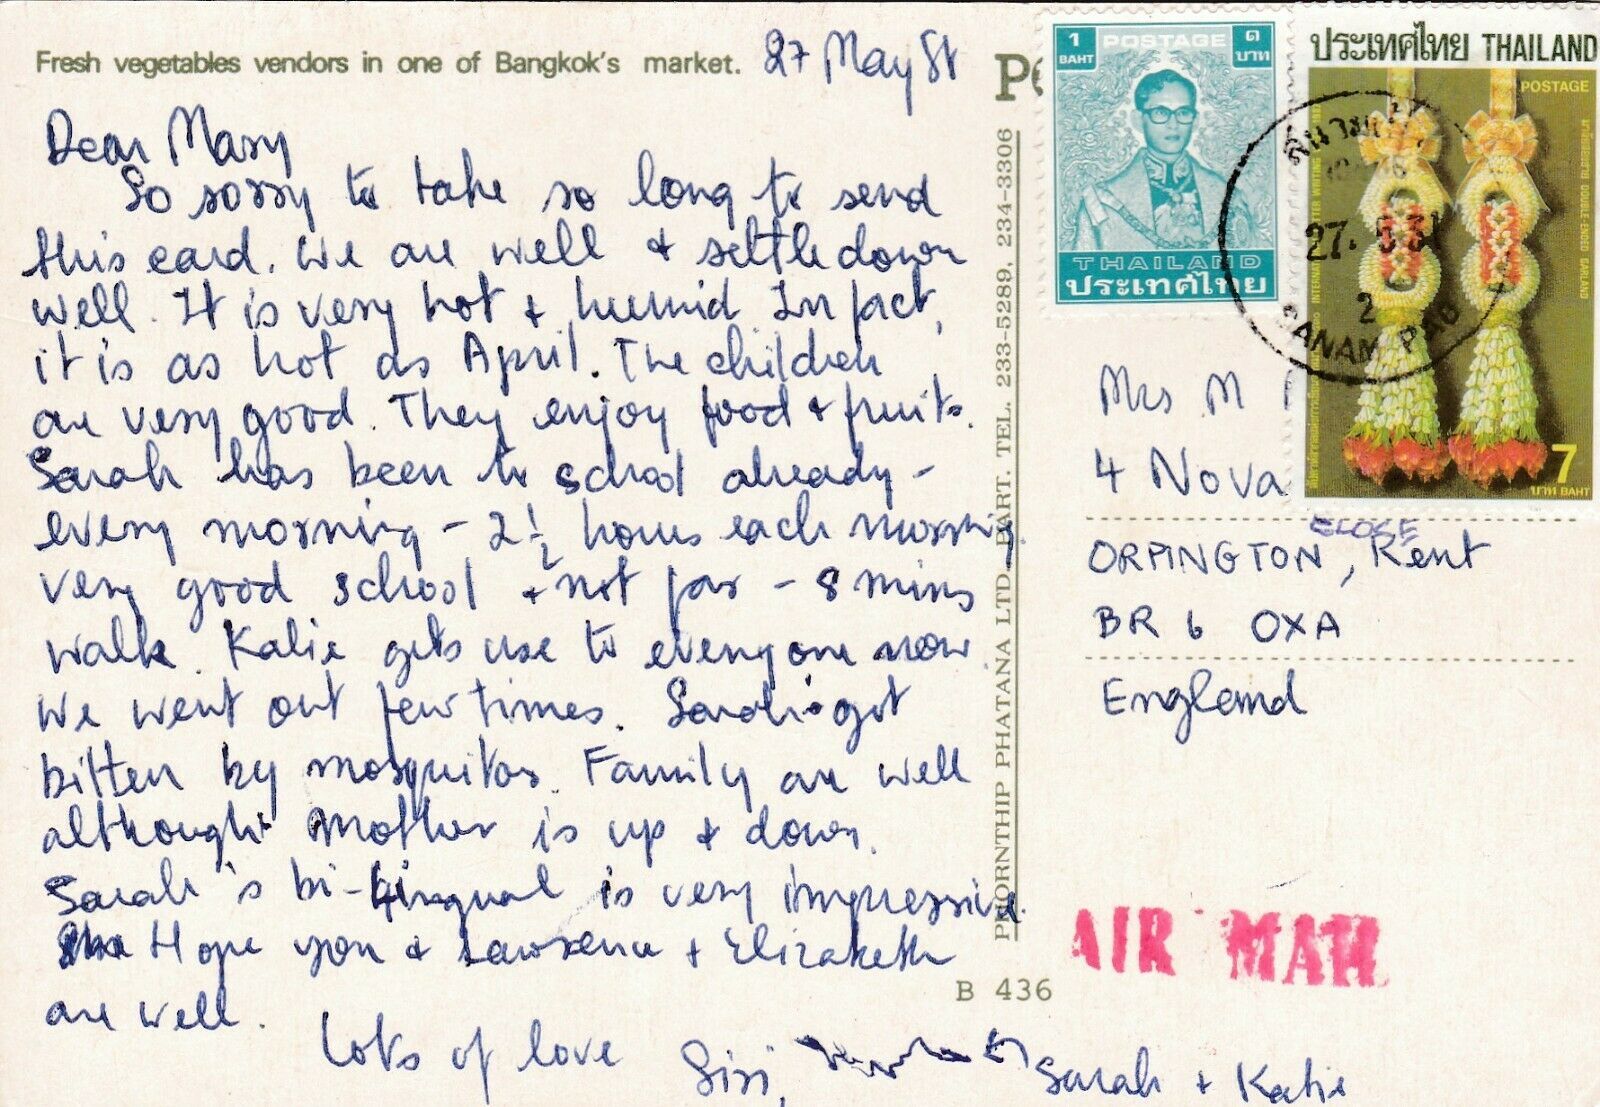 Fresh vegetables vendors in one of Bangkok's market.
27 May
Dear Mary
So sorry to take so long to send
this card. We are well & settle down
well. It is very hot & humid In fact,
it is as hot as April. The children
are very good. They enjoy food & fruits.
Sarah has been to school already –
every morning – 2½ hours each morning.
very good school & not far – 8 mins
walk. Katie gets use to everyone now.
We went out few times. Sarah got
bitten by mosquitos. Family are well
although Mother is up & down.
Sarah's bi-lingual is very impressive.
Hope you & Lawrence & Elizabeth
are well.
Lots of love
Siri,
Sarah & Katie
PHORNTHIP PHATANA LTD., PART. TEL. 233-5289, 234-3306
B 436
1 BAHT
POSTAGE
๑ บาท
THAILAND
ประเทศไทย
ประเทศไทย THAILAND
POSTAGE
DOUBLE-ENDED GARLAND
7
บาท BAHT
27.
2
SANAM PAO
Mrs M
4 Nova
CLOSE
ORPINGTON, Kent
BR6 OXA
England
AIR MAIL